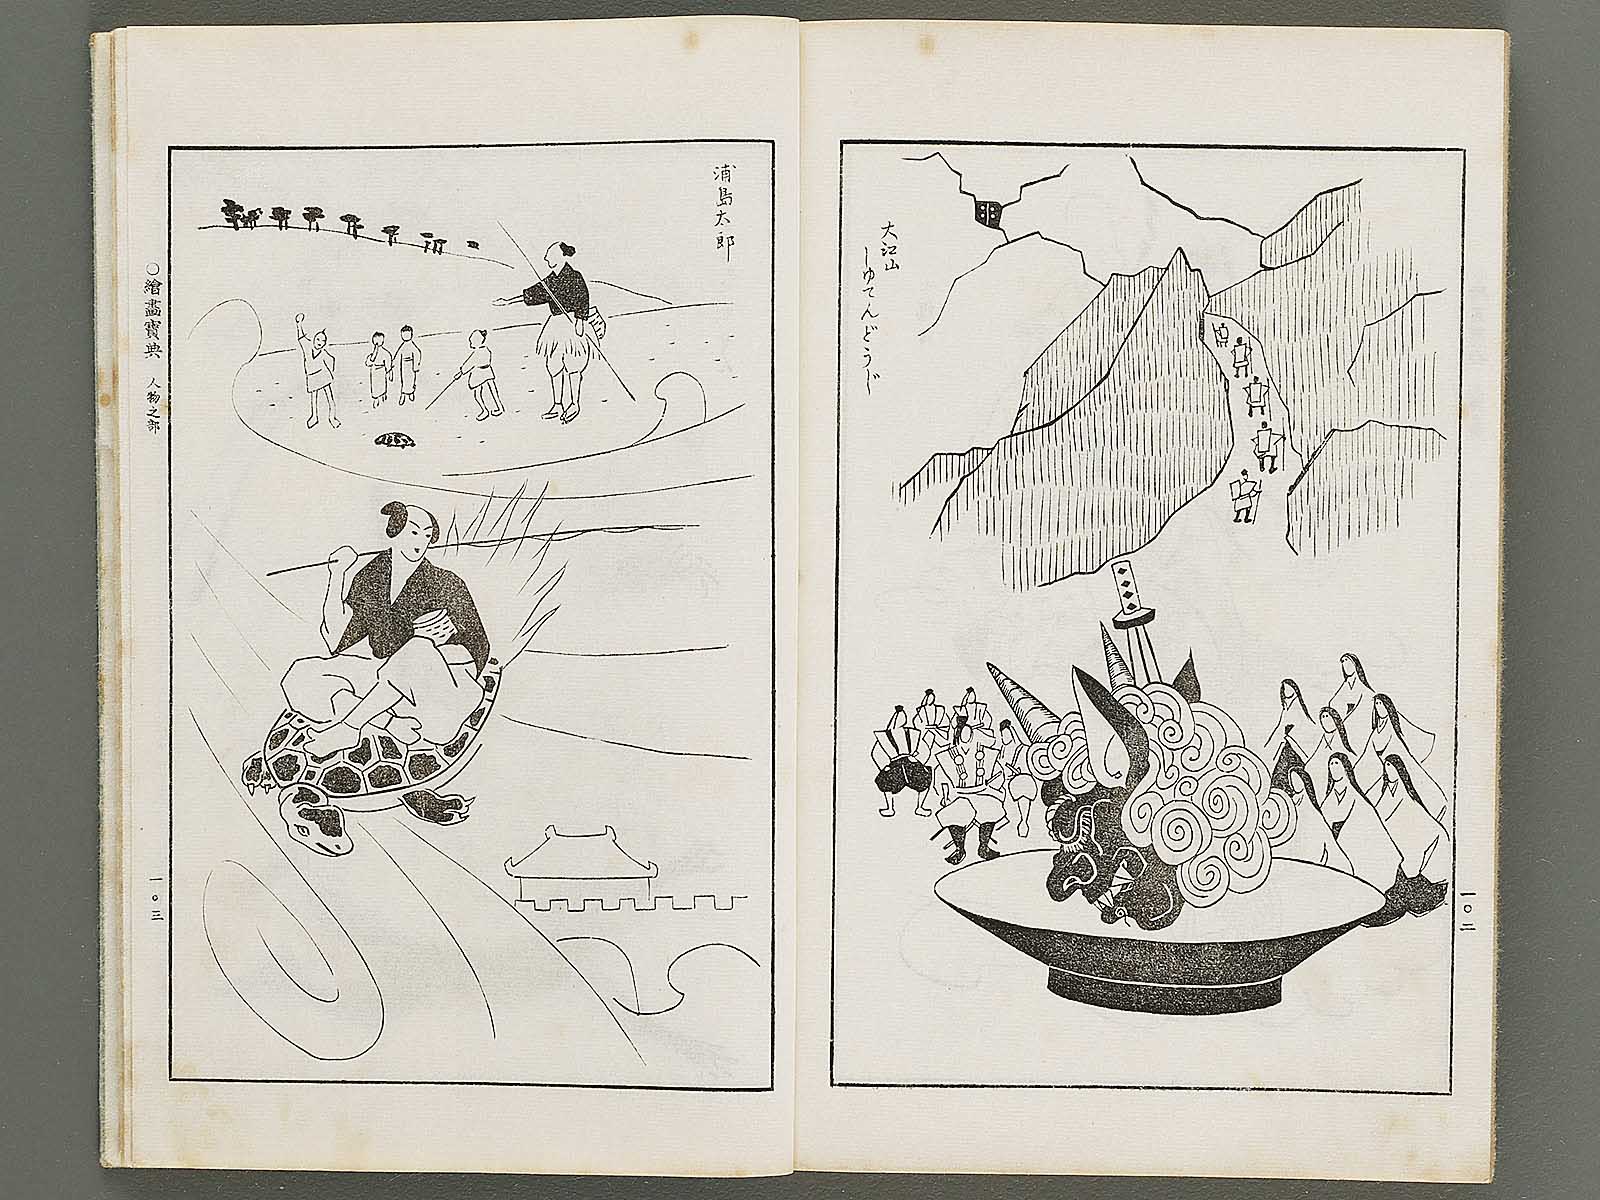 大江山
しゆてんどうじ
一〇二
浦島太郎
〇繪畫寶典 人物之部
一〇三